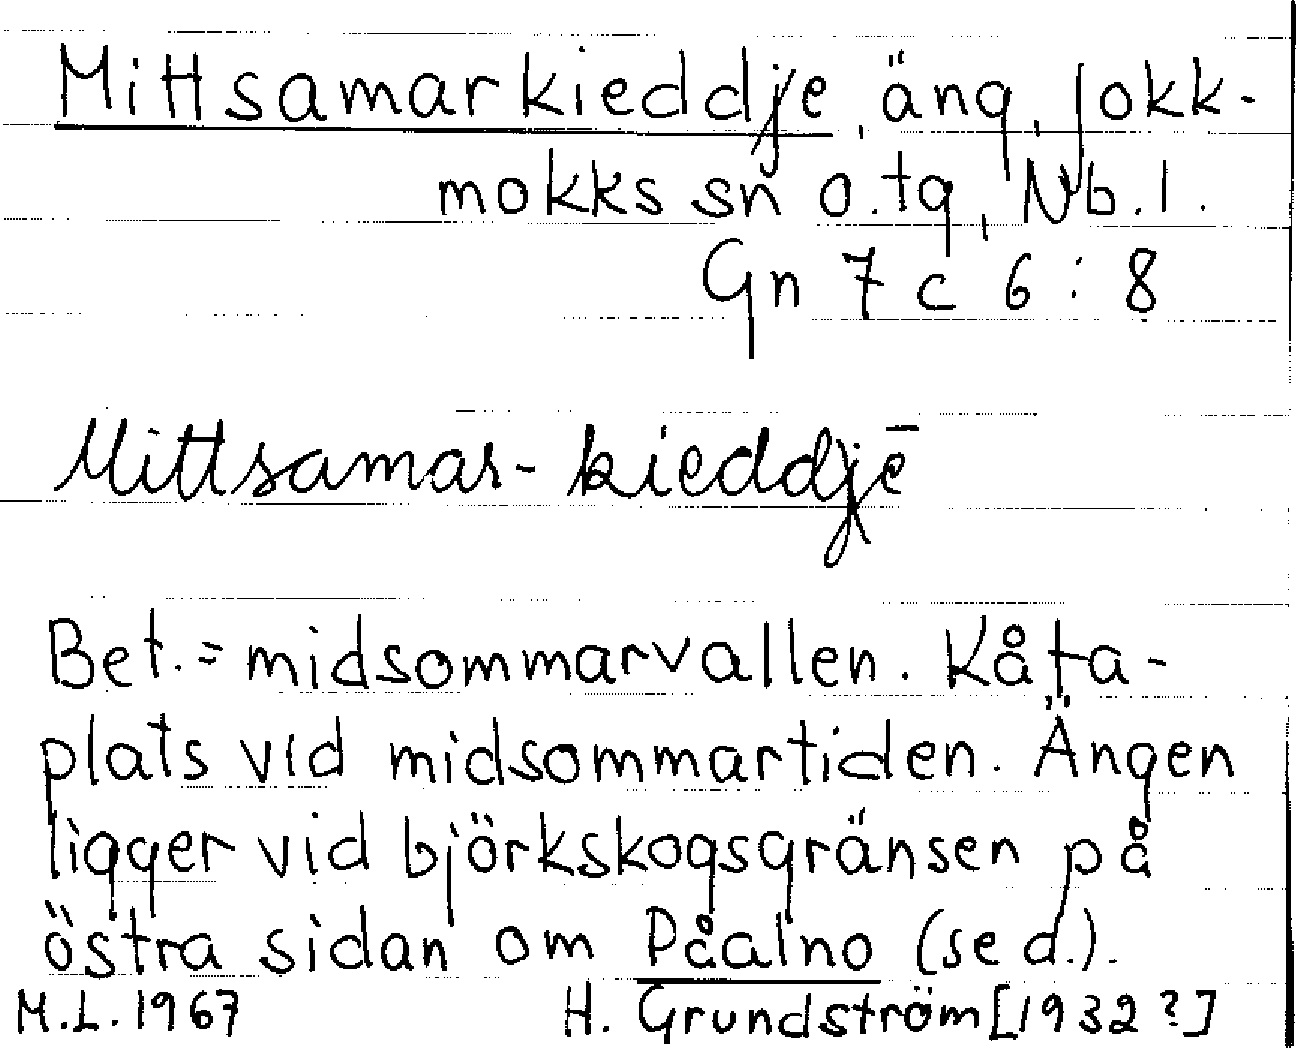 Mittsamarkieddje, äng, Jokk-
mokks sn o. tg, Nb. l.
Gn 7 c 6 : 8
Mittsamar-kieddjē
Bet. = midsommarvallen. Kåta-
plats vid midsommartiden. Ängen
ligger vid björkskogsgränsen på
östra sidan om Påalno (se d.).
M.L. 1967 H. Grundström [1932?]